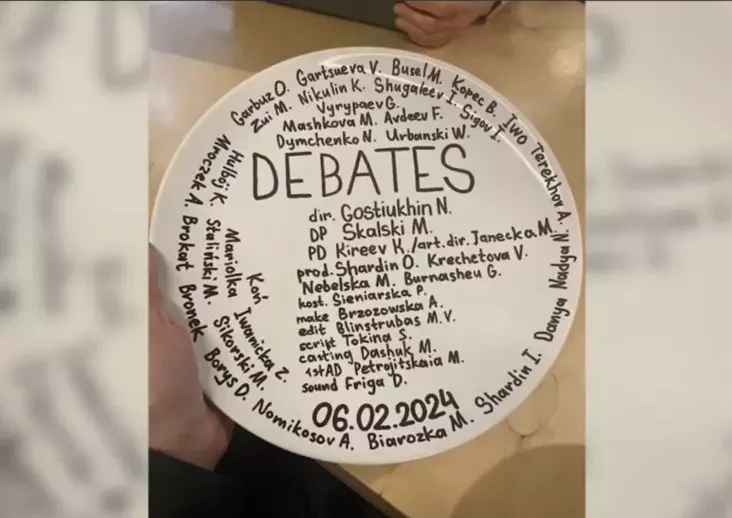 Garbuz O. Gartsueva V. Busel M. Kopec B. Iwo Terekhov A.
Zui M. Nikulin K. Shugaleev I. Sigov I.
Vyrypaev G.
Mashkova M. Avdeev F.
Dymchenko N. Urbanski W.
DEBATES
dir. Gostiukhin N.
DP Skalski M.
PD Kireev K./art.dir. Janecka M.
prod. Shardin O. Krechetova V.
Nebelska M. Burnasheu G.
kost. Sieniarska P.
make Brzozowska A.
edit Blinstrubas M.V.
script Tokina S.
casting Dashuk M.
1st AD Petrojitskaia M.
sound Friga D.
06.02.2024
Hulbój K. Staliński M. Sikorski M.
Mroczek A. Brokat Bronek Borys D. Nomikosov A. Biarozka M. Shardin I. Danya Nadya N.
Koń
Mariolka Iwanicka Z.